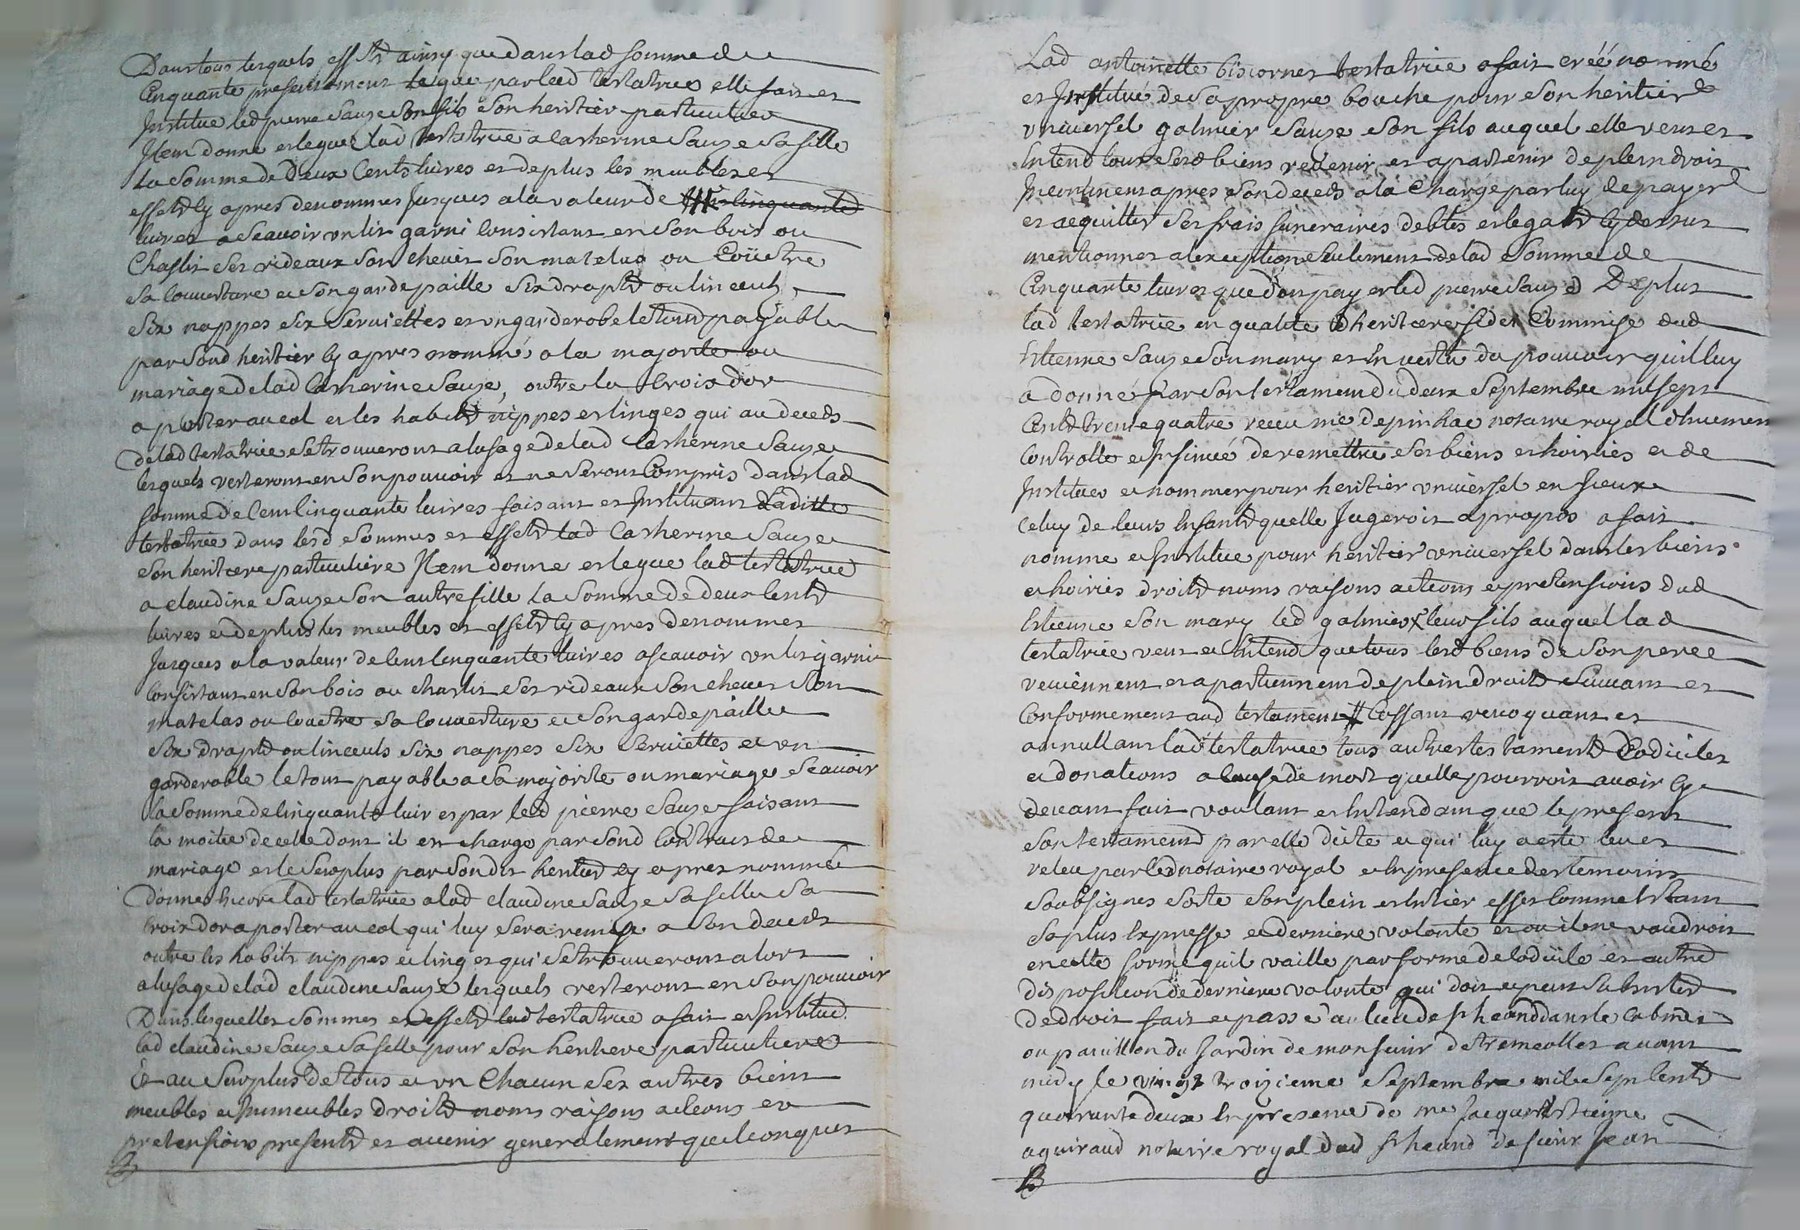 Dans tous lesquels effetd ainsy que dans lad somme de
Cinquante presentement legué par lad testatrice elle fait et
Institue led pierre Sauze son fils son heritier particulier
Item donne et legue lad testatrice a Catherine Sauze sa fille
La somme de Deux Cents livres et de plus les meubles et
effetd cy apres denommes Jusques a la valeur de cinquante
livres a scavoir un lit garni Consistant en son bois ou
Chaslit ses rideaux son chevet son matelas ou Coüetre
sa couverture et son garde paille six drapd ou linceuls
six nappes six serviettes et un garderobe le tout payable
par sond heritier cy apres nommé a la majorite ou
mariage de lad Catherine Sauze, outre la Croix d'or
a porter au col et les habitd nippes et linges qui au deceds
de lad testatrice se trouveront a lusage de lad Catherine Sauze
lesquels resteront en son pouvoir et ne seront Compris dans lad
somme de Cent Cinquante livres faisant et Instituant Laditte
testatrice dans lesd sommes et effetd lad Catherine Sauze
son heritiere particuliere Item donne et legue lad testatrice
a claudine Sauze son autre fille La somme de deux Centd
livres et de plus les meubles et effetd cy apres denommes
Jusques a la valeur de Cent Cinquante livres a scavoir un lit garni
Consistant en son bois ou charlit ses rideaux son chevet son
matelas ou Couetre sa couverture et son garde paille
six drapd ou linceuls six nappes six serviettes et un
garderoble le tout payable a sa majorite ou mariage scavoir
la somme de Cinquante livres par led pierre Sauze faisant
la moitie de celle dont il est chargé par sond Contract de
mariage et le surplus par sondit heritier cy apres nommé
Donne encore lad testatrice a lad claudine Sauze sa fille sa
Croix dor a porter au col qui luy sera remise a son deceds
outre les habits nippes et linges qui se trouveront alors
a lusage de lad claudine Sauze lesquels resteront en son pouvoir
Dans lesquelles sommes et effetd lad testatrice a fait et Institué
lad claudine Sauze sa fille pour son heritiere particuliere
Et au surplus de tous et un Chacun ses autres biens
meubles et Immeubles droitd noms raisons actions et
pretensions presentd et avenir generalement quelconques
Lad antoinette biscornet testatrice a fait créé nommé
et Institué de sa propre bouche pour son heritier
universel galmier Sauze son fils auquel elle veut et
Intend tous sesd biens revenir et apartenir de plein droit
Incontinent apres son deceds a la Charge par luy de payer
et acquitter ses frais funeraires debtes et legatd cy dessus
mentionnes a lexception seulement de lad somme de
Cinquante livres que doit payer led pierre Sauze De plus
lad testatrice en qualite dheritiere fidei Commise dud
Etienne Sauze son mary et En vertu du pouvoir quil luy
a donné par son testament du deux Septembre mil sept
Centd trente quatre receu me depinhac notaire royal dhuement
Controlle et Insinué de remettre ses biens et hoiries et de
Instituer et nommer pour heritier universel en Iceux
Celuy de leurs Enfantd quelle Jugeroit a propos a fait
nomme et Institue pour heritier universel dans les biens
et hoiries droitd noms raisons actions et pretensions dud
Etienne son mary led galmier leur fils auquel lad
testatrice veut et Entend que tous lesd biens de son pere
viennent et apartiennent de plein droitd suivant et
Conformement aud testament Cassant revoquant et
annullant lad testatrice tous autres testamentd Codiciles
et donations a cause de mort quelle pourroit avoir cy
devant fait voulant et Entendant que le present
son testament par elle dicté et qui luy a esté leu et
releu par led notaire royal et En presence des temoins
soubsignes sorte son plein et Entier effet Comme Estant
sa plus Expresse et derniere volonte et ou il ne vaudroit
en cette forme quil vaille par forme de Codicile et autre
disposition de derniere volonte qui doit et peut subsister
De droit fait et passé au lieu de st heand dans le Cabinet
ou pavillon du Jardin de monsieur detremeolles avant
midy le vingt troizieme Septembre mil sept Centd
quarante deux En presence de me Jacques Etienne
aguiraud notaire royal dud st heand de sieur Jean